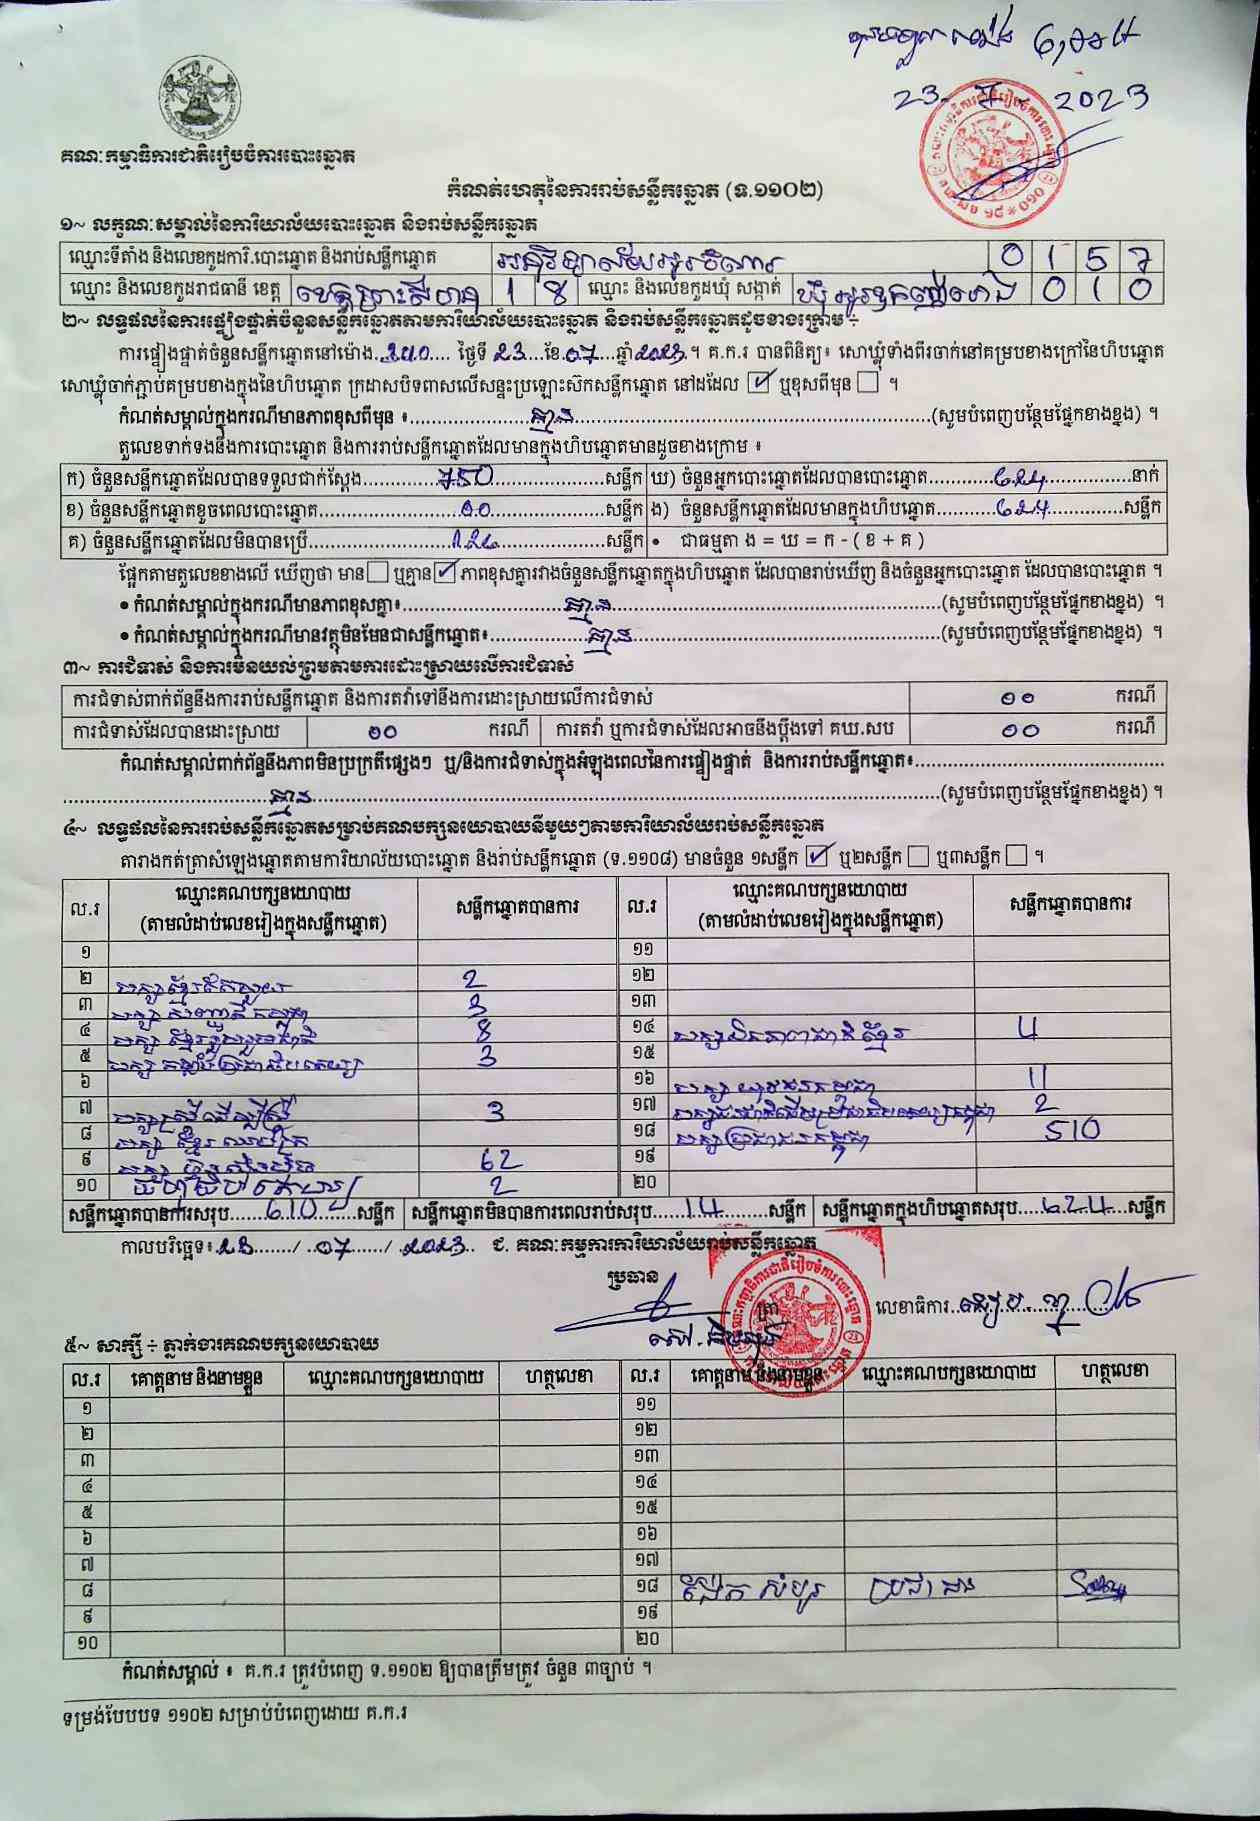 23- 7- 2023
គណៈកម្មាធិការជាតិរៀបចំការបោះឆ្នោត
កំណត់ហេតុនៃការរាប់សន្លឹកឆ្នោត (ទ.១១០២)
១~ លក្ខណៈសម្គាល់នៃការិយាល័យបោះឆ្នោត និងរាប់សន្លឹកឆ្នោត
ឈ្មោះទីតាំង និងលេខកូដការិ.បោះឆ្នោត និងរាប់សន្លឹកឆ្នោត 0 1 5 7
ឈ្មោះ និងលេខកូដរាជធានី ខេត្ត ខេត្តព្រះសីហនុ 1 8 ឈ្មោះ និងលេខកូដឃុំ សង្កាត់ ឃុំ អូរឧកញ៉ាហេង 0 1 0
២~ លទ្ធផលនៃការផ្ទៀងផ្ទាត់ចំនួនសន្លឹកឆ្នោតតាមការិយាល័យបោះឆ្នោត និងរាប់សន្លឹកឆ្នោតដូចខាងក្រោម ÷
ការផ្ទៀងផ្ទាត់ចំនួនសន្លឹកឆ្នោតនៅម៉ោង ថ្ងៃទី 23 ខែ 07 ឆ្នាំ 2023 ។ គ.ក.រ បានពិនិត្យ៖ សោឃ្លុំទាំងពីរចាក់នៅគម្របខាងក្រៅនៃហិបឆ្នោត
សោឃ្លុំចាក់ភ្ជាប់គម្របខាងក្នុងនៃហិបឆ្នោត ក្រដាសបិទពាសលើសន្ទះប្រឡោះស៊កសន្លឹកឆ្នោត នៅដដែល ☑ ឬខុសពីមុន ☐ ។
កំណត់សម្គាល់ក្នុងករណីមានភាពខុសពីមុន ៖ គ្មាន (សូមបំពេញបន្ថែមផ្នែកខាងខ្នង) ។
តួលេខទាក់ទងនឹងការបោះឆ្នោត និងការរាប់សន្លឹកឆ្នោតដែលមានក្នុងហិបឆ្នោតមានដូចខាងក្រោម ៖
ក) ចំនួនសន្លឹកឆ្នោតដែលបានទទួលជាក់ស្តែង 750 សន្លឹក ឃ) ចំនួនអ្នកបោះឆ្នោតដែលបានបោះឆ្នោត 624 នាក់
ខ) ចំនួនសន្លឹកឆ្នោតខូចពេលបោះឆ្នោត 00 សន្លឹក ង) ចំនួនសន្លឹកឆ្នោតដែលមានក្នុងហិបឆ្នោត 624 សន្លឹក
គ) ចំនួនសន្លឹកឆ្នោតដែលមិនបានប្រើ 126 សន្លឹក • ជាធម្មតា ង = ឃ = ក - ( ខ + គ )
ផ្អែកតាមតួលេខខាងលើ ឃើញថា មាន ☐ ឬគ្មាន ☑ ភាពខុសគ្នារវាងចំនួនសន្លឹកឆ្នោតក្នុងហិបឆ្នោត ដែលបានរាប់ឃើញ និងចំនួនអ្នកបោះឆ្នោត ដែលបានបោះឆ្នោត ។
• កំណត់សម្គាល់ក្នុងករណីមានភាពខុសគ្នា៖ គ្មាន (សូមបំពេញបន្ថែមផ្នែកខាងខ្នង) ។
• កំណត់សម្គាល់ក្នុងករណីមានវត្ថុមិនមែនជាសន្លឹកឆ្នោត៖ គ្មាន (សូមបំពេញបន្ថែមផ្នែកខាងខ្នង) ។
៣~ ការជំទាស់ និងការមិនយល់ព្រមតាមការដោះស្រាយលើការជំទាស់
ការជំទាស់ពាក់ព័ន្ធនឹងការរាប់សន្លឹកឆ្នោត និងការតវ៉ាទៅនឹងការដោះស្រាយលើការជំទាស់ 00 ករណី
ការជំទាស់ដែលបានដោះស្រាយ 00 ករណី ការតវ៉ា ឬការជំទាស់ដែលអាចនឹងប្តឹងទៅ គឃ.សប 00 ករណី
កំណត់សម្គាល់ពាក់ព័ន្ធនឹងភាពមិនប្រក្រតីផ្សេងៗ ឬ/និងការជំទាស់ក្នុងអំឡុងពេលនៃការផ្ទៀងផ្ទាត់ និងការរាប់សន្លឹកឆ្នោត៖
គ្មាន (សូមបំពេញបន្ថែមផ្នែកខាងខ្នង) ។
៤~ លទ្ធផលនៃការរាប់សន្លឹកឆ្នោតសម្រាប់គណបក្សនយោបាយនីមួយៗតាមការិយាល័យរាប់សន្លឹកឆ្នោត
តារាងកត់ត្រាសំឡេងឆ្នោតតាមការិយាល័យបោះឆ្នោត និងរាប់សន្លឹកឆ្នោត (ទ.១១០៨) មានចំនួន ១សន្លឹក ☑ ឬ២សន្លឹក ☐ ឬ៣សន្លឹក ☐ ។
ល.រ ឈ្មោះគណបក្សនយោបាយ (តាមលំដាប់លេខរៀងក្នុងសន្លឹកឆ្នោត) សន្លឹកឆ្នោតបានការ ល.រ ឈ្មោះគណបក្សនយោបាយ (តាមលំដាប់លេខរៀងក្នុងសន្លឹកឆ្នោត) សន្លឹកឆ្នោតបានការ
១ ១១
២ 2 ១២
៣ 3 ១៣
៤ បក្ស ខ្មែររួបរួមជាតិ 8 ១៤ បក្សឯកភាពជាតិខ្មែរ 4
៥ បក្ស កម្លាំងប្រជាធិបតេយ្យ 3 ១៥
៦ ១៦ បក្ស យុវជនកម្ពុជា 11
៧ បក្សស្ត្រីដើម្បីស្ត្រី 3 ១៧ 2
៨ ១៨ បក្សប្រជាជនកម្ពុជា 510
៩ បក្ស ហ្វ៊ុនស៊ិនប៉ិច 62 ១៩
១០ 2 ២០
សន្លឹកឆ្នោតបានការសរុប 610 សន្លឹក សន្លឹកឆ្នោតមិនបានការពេលរាប់សរុប 14 សន្លឹក សន្លឹកឆ្នោតក្នុងហិបឆ្នោតសរុប 624 សន្លឹក
កាលបរិច្ឆេទ៖ 23 / 07 / 2023 ជ. គណៈកម្មការការិយាល័យរាប់សន្លឹកឆ្នោត
ប្រធាន ត្រា លេខាធិការ
៥~ សាក្សី ÷ ភ្នាក់ងារគណបក្សនយោបាយ
ល.រ គោត្តនាម និងនាមខ្លួន ឈ្មោះគណបក្សនយោបាយ ហត្ថលេខា ល.រ គោត្តនាម និងនាមខ្លួន ឈ្មោះគណបក្សនយោបាយ ហត្ថលេខា
១ ១១
២ ១២
៣ ១៣
៤ ១៤
៥ ១៥
៦ ១៦
៧ ១៧
៨ ១៨ ប្រជាជន
៩ ១៩
១០ ២០
កំណត់សម្គាល់ ៖ គ.ក.រ ត្រូវបំពេញ ទ.១១០២ ឱ្យបានត្រឹមត្រូវ ចំនួន ៣ច្បាប់ ។
ទម្រង់បែបបទ ១១០២ សម្រាប់បំពេញដោយ គ.ក.រ